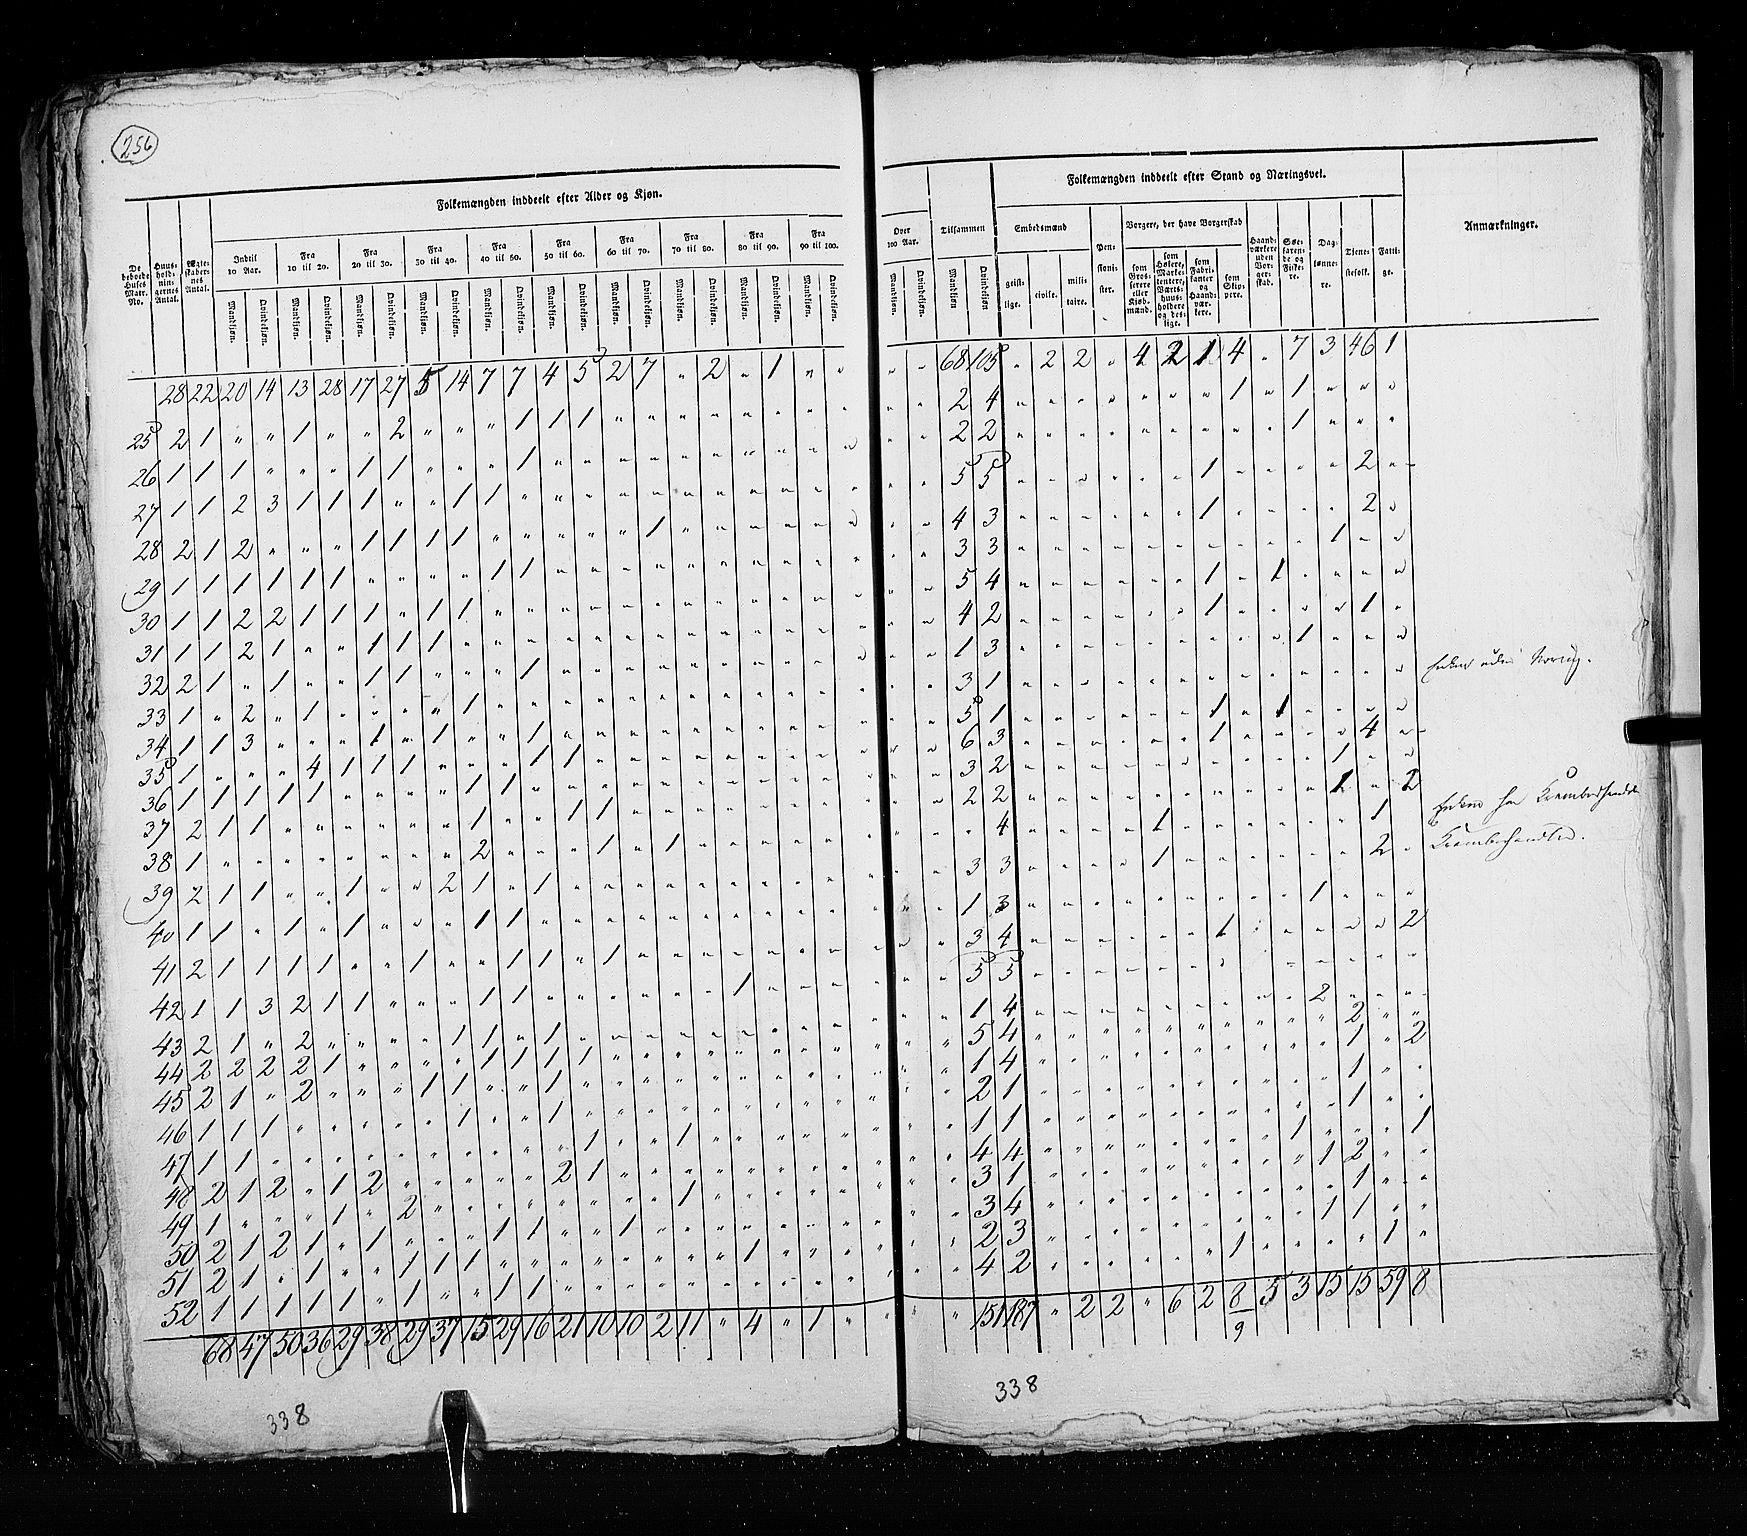 256
Folkemængden inddeelt efter Alder og Kjøn.
Folkemængden inddeelt efter Stand og Næringsvei.
De beboede Huses Matr. No.
Huus-hold-nin-gernes Antal.
Ægte-skaber-nes Antal.
Indtil 10 Aar.
Fra 10 til 20.
Fra 20 til 30.
Fra 30 til 40.
Fra 40 til 50.
Fra 50 til 60.
Fra 60 til 70.
Fra 70 til 80.
Fra 80 til 90.
Fra 90 til 100.
Over 100 Aar.
Tilsammen
Mandkjøn. Qvindekjøn. Mandkjøn. Qvindekjøn. Mandkjøn. Qvindekjøn. Mandkjøn. Qvindekjøn. Mandkjøn. Qvindekjøn. Mandkjøn. Qvindekjøn. Mandkjøn. Qvindekjøn. Mandkjøn. Qvindekjøn. Mandkjøn. Qvindekjøn. Mandkjøn. Qvindekjøn. Mandkjøn. Qvindekjøn. Mandkjøn Qvindekjøn
Embedsmænd
geist-lige.
civile.
mili-taire.
Pen-sioni-ster.
Borgere, der have Borgerskab
som Gros-serere eller Kjøb-mænd.
som Høkere, Marke-tentere, Værts-huus-holdere og des-lige.
som Fabri-kanter og Haand-vær-kere.
som Skip-pere.
Haand-værkere uden Bor-ger-skab.
Søe-faren-de og Fiske-re.
Dag-lønne-re.
Tiene-stefolk.
Fatti-ge.
Anmærkninger.
28 22 20 14 13 28 17 27 5 14 7 7 4 5 2 7 " 2 " 1 " " " " 68 105 " 2 2 " 4 2 1 4 " 7 3 46 1
25 2 1 " " 1 " " 2 " " " 1 1 1 2 4 1 1
26 1 1 1 " " " 1 1 " " " 1 2 2 1
27 1 1 2 3 1 1 1 " " 1 1 5 5 1 2
28 2 1 2 " " " 1 1 1 1 1 4 3 1 2
29 1 1 1 1 1 1 " " " " 1 1 3 3 1
30 1 1 2 2 1 1 1 " 1 1 5 4 1 1
31 1 1 2 1 " " 1 1 1 4 2 1 1
32 2 1 " 1 " " 1 1 " " " 1 1 3 1
33 1 " 2 " 1 " " " " 1 3 1
34 1 1 3 " " " 1 " 1 " " 1 5 1 1 1
35 1 " " " 4 1 1 1 " " " 1 1 6 3 1 4
36 1 1 1 1 1 " " " " 1 1 3 2 1
37 2 1 1 " " " " " " 1 " " 1 1 2 2 1 2
38 1 " " " " " " " " 2 " " " 1 " 1 " 4 1 1
39 2 1 1 " " 1 " " 2 1 " 1 3 3 1 2
40 1 1 " 1 " 1 " " " 1 1 1 3 1
41 2 1 1 1 1 " " 1 " " 1 1 " 1 3 4 1 2
42 1 1 3 2 1 1 " " " 1 1 5 5
43 2 1 " 2 " " " " 1 1 " 1 1 4 2
44 2 2 2 2 1 " " " " 1 1 1 1 5 4 2
45 2 1 " 2 " " " 1 1 " " 1 1 4 1 2
46 1 1 1 " " " " " 1 " " 1 2 1 1
47 1 1 " " " " " " " " " " 1 " " 1 1 1 1
48 2 1 2 " 1 2 " " " " " 2 1 4 4 1 1
49 1 " " " 1 " 2 3 1 1 2
50 2 1 2 1 " 1 " " " 1 1 " " 1 3 4 1
51 2 1 " 1 " " 1 1 1 1 2 3 1 1
52 1 1 1 1 1 " 1 " " 1 1 4 2 1 1
68 47 50 36 29 38 29 37 15 29 16 21 10 10 2 11 " 4 " 1 " " " 151 187 " 2 2 " 6 2 8 5 3 15 15 59 8
9
338
338